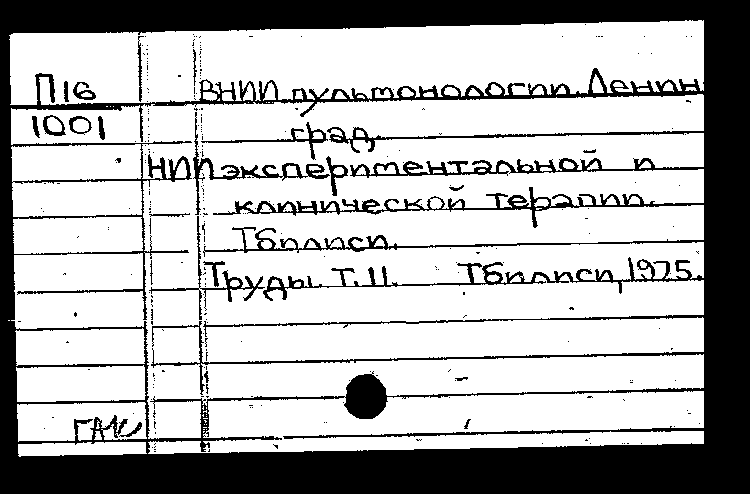 П16
1001
ВНИИ пульмонологии. Ленин
град.
НИИ экспериментальной и
клинической терапии.
Тбилиси.
Труды. Т.11. Тбилиси, 1975.
ГАК